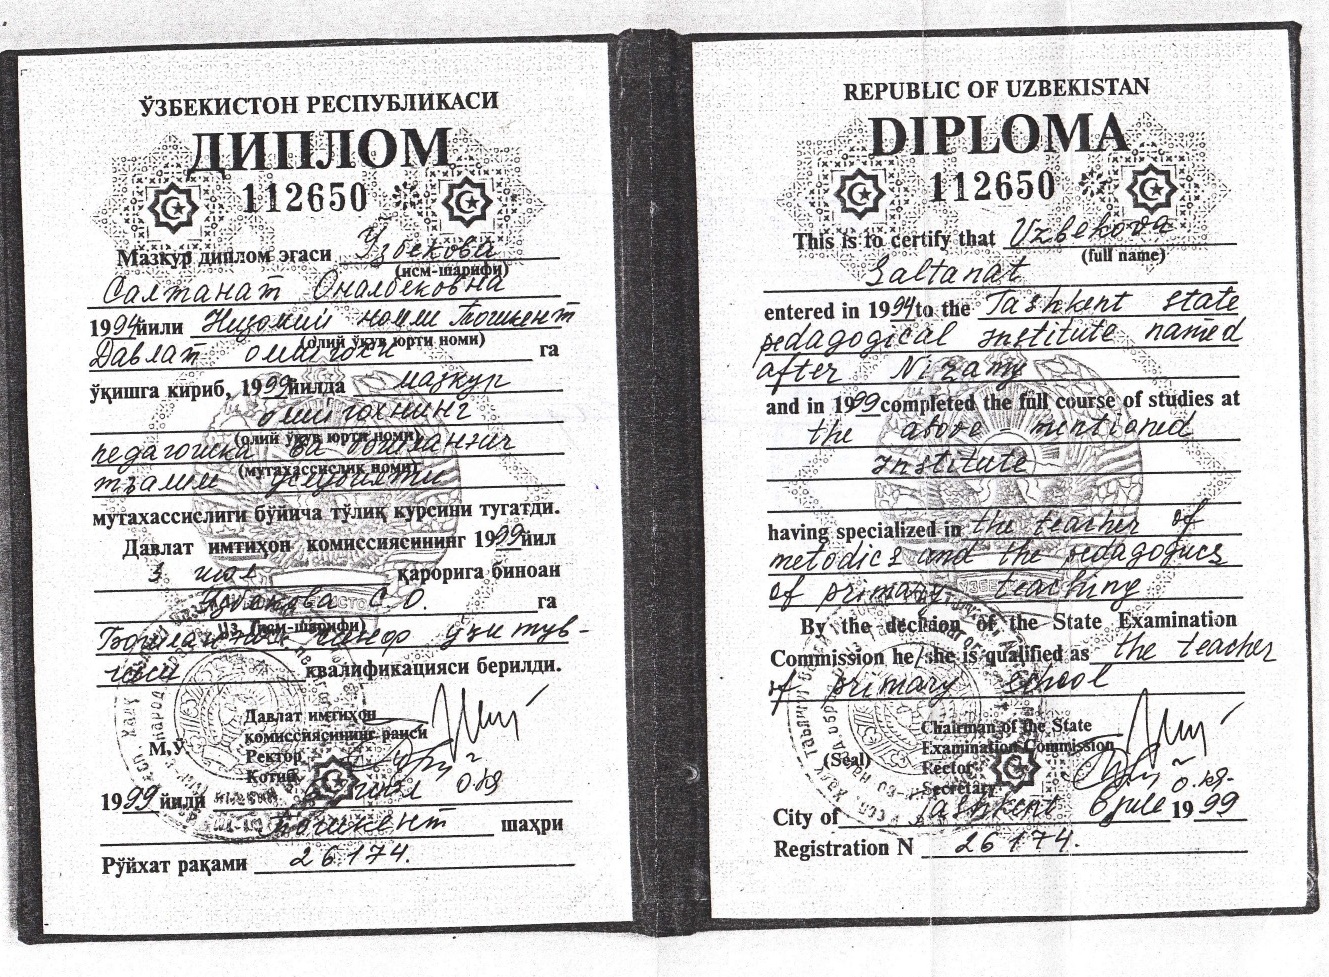 ЎЗБЕКИСТОН РЕСПУБЛИКАСИ
ДИПЛОМ
112650
Мазкур диплом эгаси Узбекова
(исм-шарифи)
Салтанат Оналбековна
1994йили Низомий номли Тошкент
(олий ўқув юрти номи)
Давлат олийгохи га
ўқишга кириб, 1999йилда мазкур
олийгохнинг
(олий ўқув юрти номи)
педагогика ва бошланғич
(мутахассислик номи)
таълим услубияти
мутахассислиги бўйича тўлиқ курсини тугатди.
Давлат имтиҳон комиссиясининг 1999йил
3 июл қарорига биноан
Узбекова С.О. га
(исм-шарифи)
Бошланғич синф ўқитув-
чиси квалификацияси берилди.
Давлат имтиҳон
комиссиясининг раиси
М,Ў.
Ректор
Котиб
1999йили июл
Тошкент шаҳри
Рўйхат рақами 26174.
REPUBLIC OF UZBEKISTAN
DIPLOMA
112650
This is to certify that Uzbekova
(full name)
Saltanat
entered in 1994to the Tashkent state
pedagogical institute named
after Nizamy
and in 1999completed the full course of studies at
the above mentioned
institute
having specialized in the teacher of
metodics and the pedagogics
of primary teaching
By the decision of the State Examination
Commission he/she is qualified as the teacher
of primary school
Chairman of the State
Examination Commission
(Seal)
Rector
Secretary
City of Tashkent 6 july 1999
Registration N 26174.